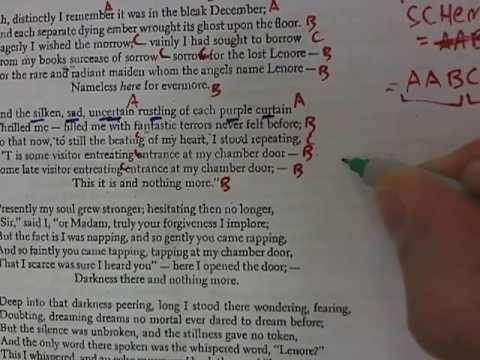 h, distinctly I remember it was in the bleak December; A
nd each separate dying ember wrought its ghost upon the floor. B
agerly I wished the morrow; C vainly I had sought to borrow C
rom my books surcease of sorrow C sorrow for the lost Lenore — B
or the rare and radiant maiden whom the angels name Lenore — B
Nameless here for evermore. B
nd the silken, sad, uncertain rustling of each purple curtain A
hrilled me — filled me with fantastic terrors never felt before; B
o that now, to still the beating of my heart, I stood repeating, C
"T is some visitor entreating entrance at my chamber door — B
ome late visitor entreating entrance at my chamber door; — B
This it is and nothing more." B
resently my soul grew stronger; hesitating then no longer,
Sir," said I, "or Madam, truly your forgiveness I implore;
But the fact is I was napping, and so gently you came rapping,
And so faintly you came tapping, tapping at my chamber door,
That I scarce was sure I heard you" — here I opened the door; —
Darkness there and nothing more.
Deep into that darkness peering, long I stood there wondering, fearing,
Doubting, dreaming dreams no mortal ever dared to dream before;
But the silence was unbroken, and the stillness gave no token,
And the only word there spoken was the whispered word, "Lenore?"
This I whispered, and an echo murmured back the word
SCHEM
= AAB
= AABC